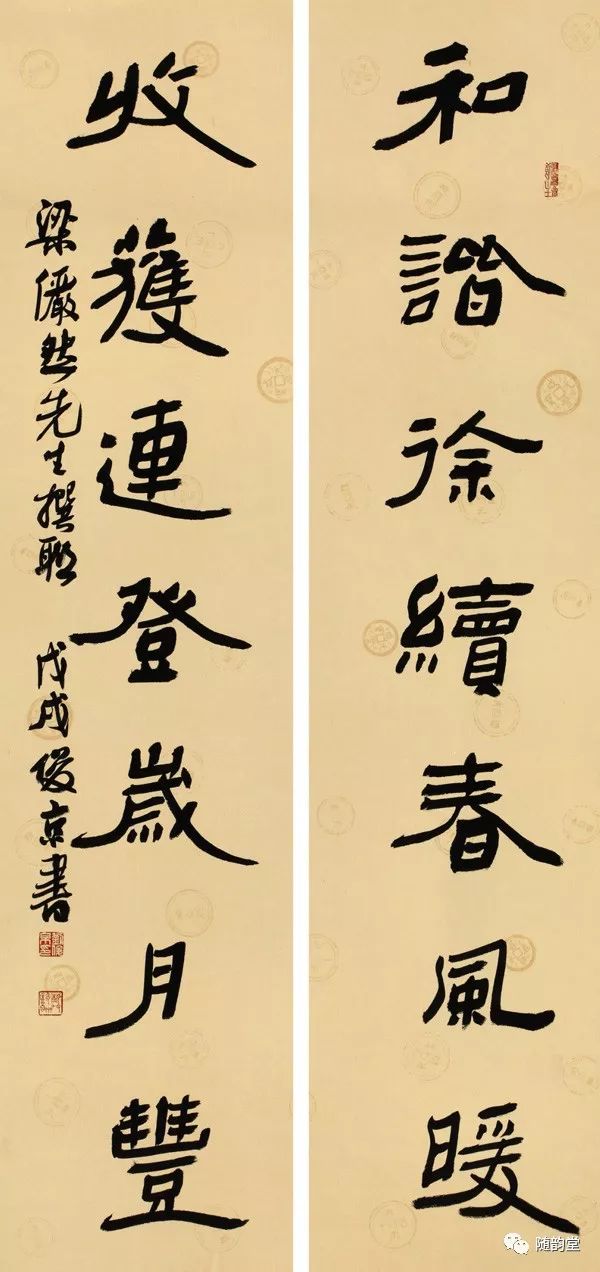 和諧徐續春風暖
收獲連登歲月豐
梁儼然先生撰聯 戊戌俊京書
随韵堂